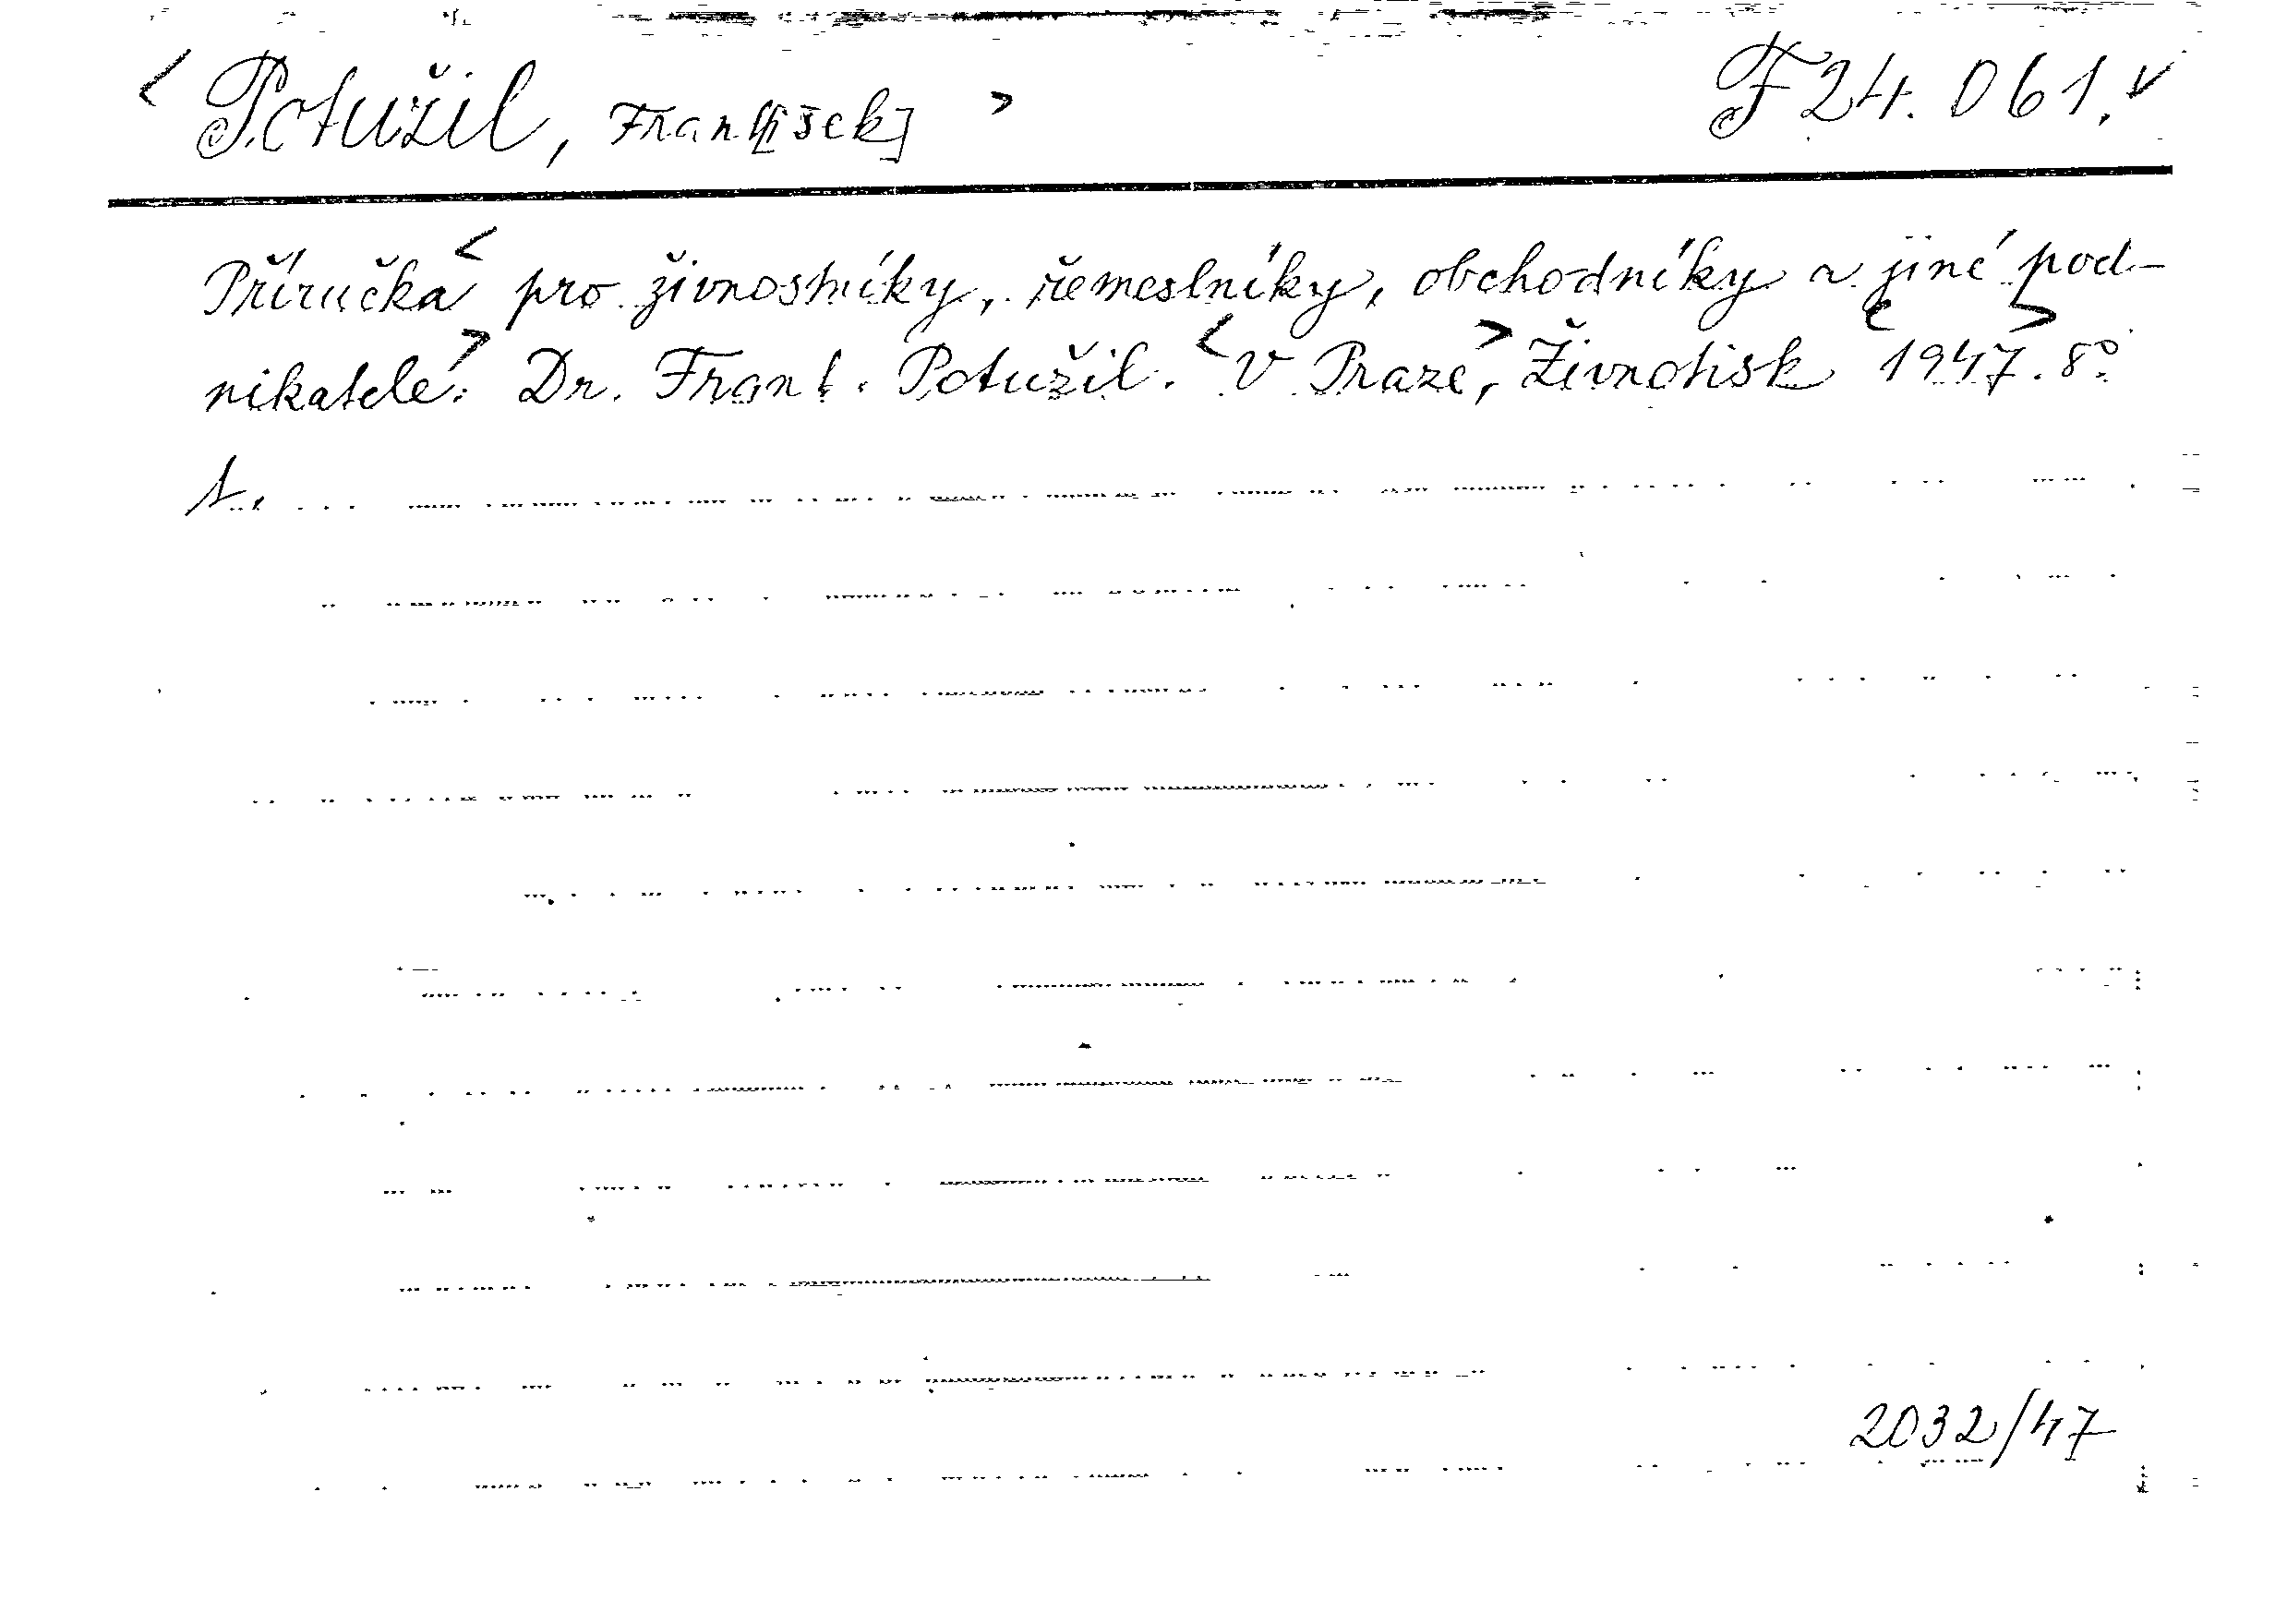 < Potužil, Frant[išek] > F 24.061.
Příručka < pro živnostníky, řemeslníky, obchodníky a jiné pod-
nikatele. > Dr. Frant. Potužil. < V Praze, > Živnotisk < 1947. > 8°
1.
2032/47